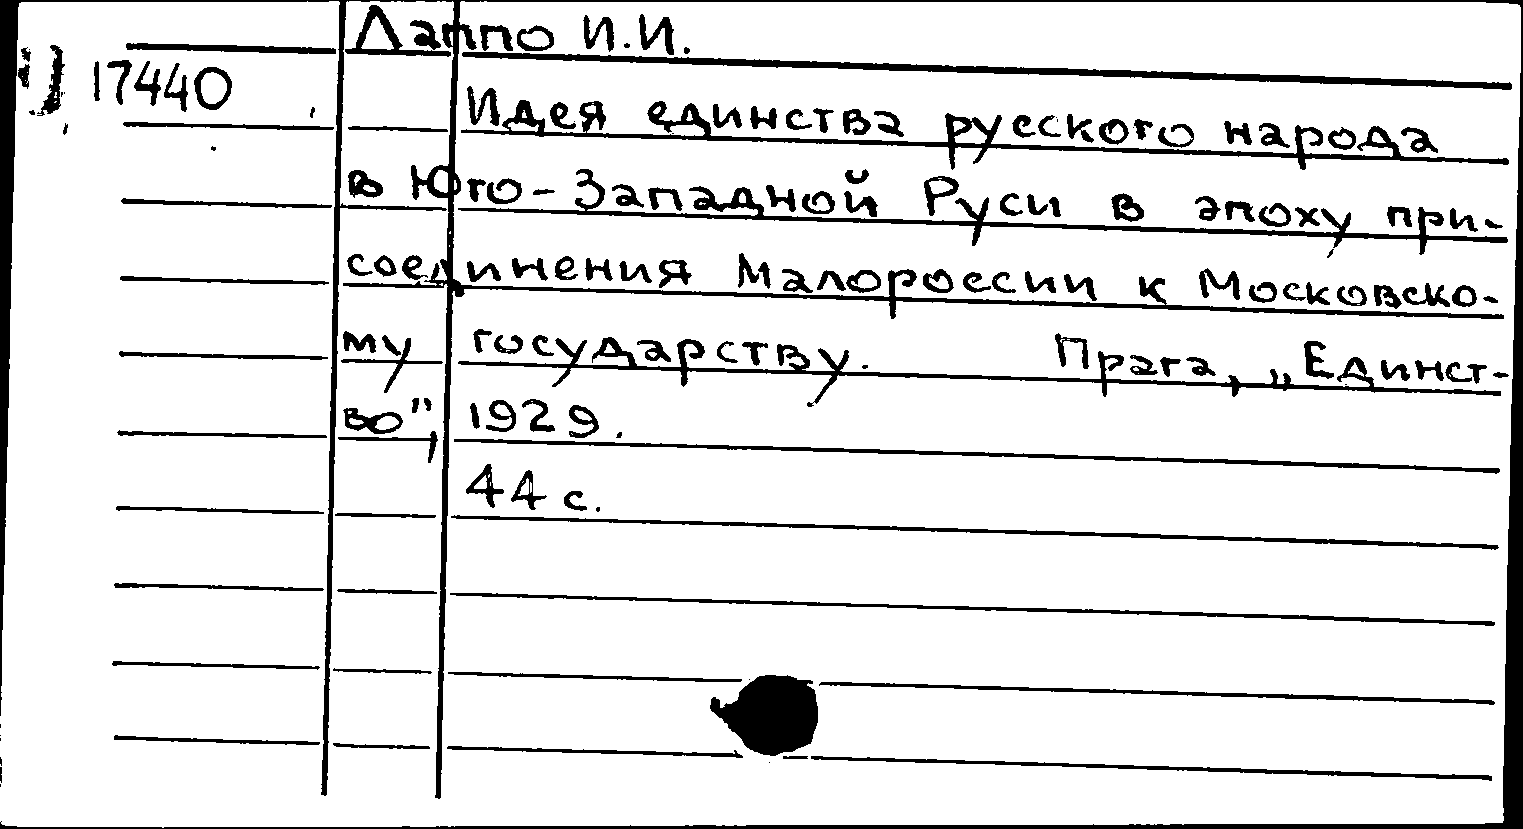 Лаппо И.И.
17440
Идея единства русского народа
в Юго-Западной Руси в эпоху при-
соединения Малороссии к Московско-
му государству. Прага, „Единст-
во", 1929.
44 с.